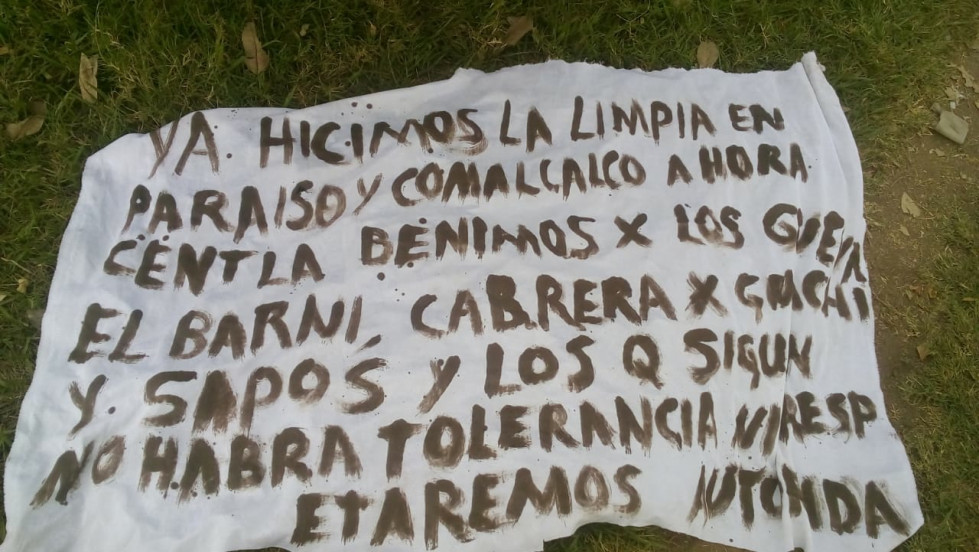 YA. HICIMOS LA LIMPIA EN
PARAISO Y COMALCALCO AHORA
CENTLA BENIMOS X LOS
EL BARNI, CABRERA X
Y. SAPOS Y LOS Q SIGUN
NO HABRA TOLERANCIA NI RESP
ETAREMOS